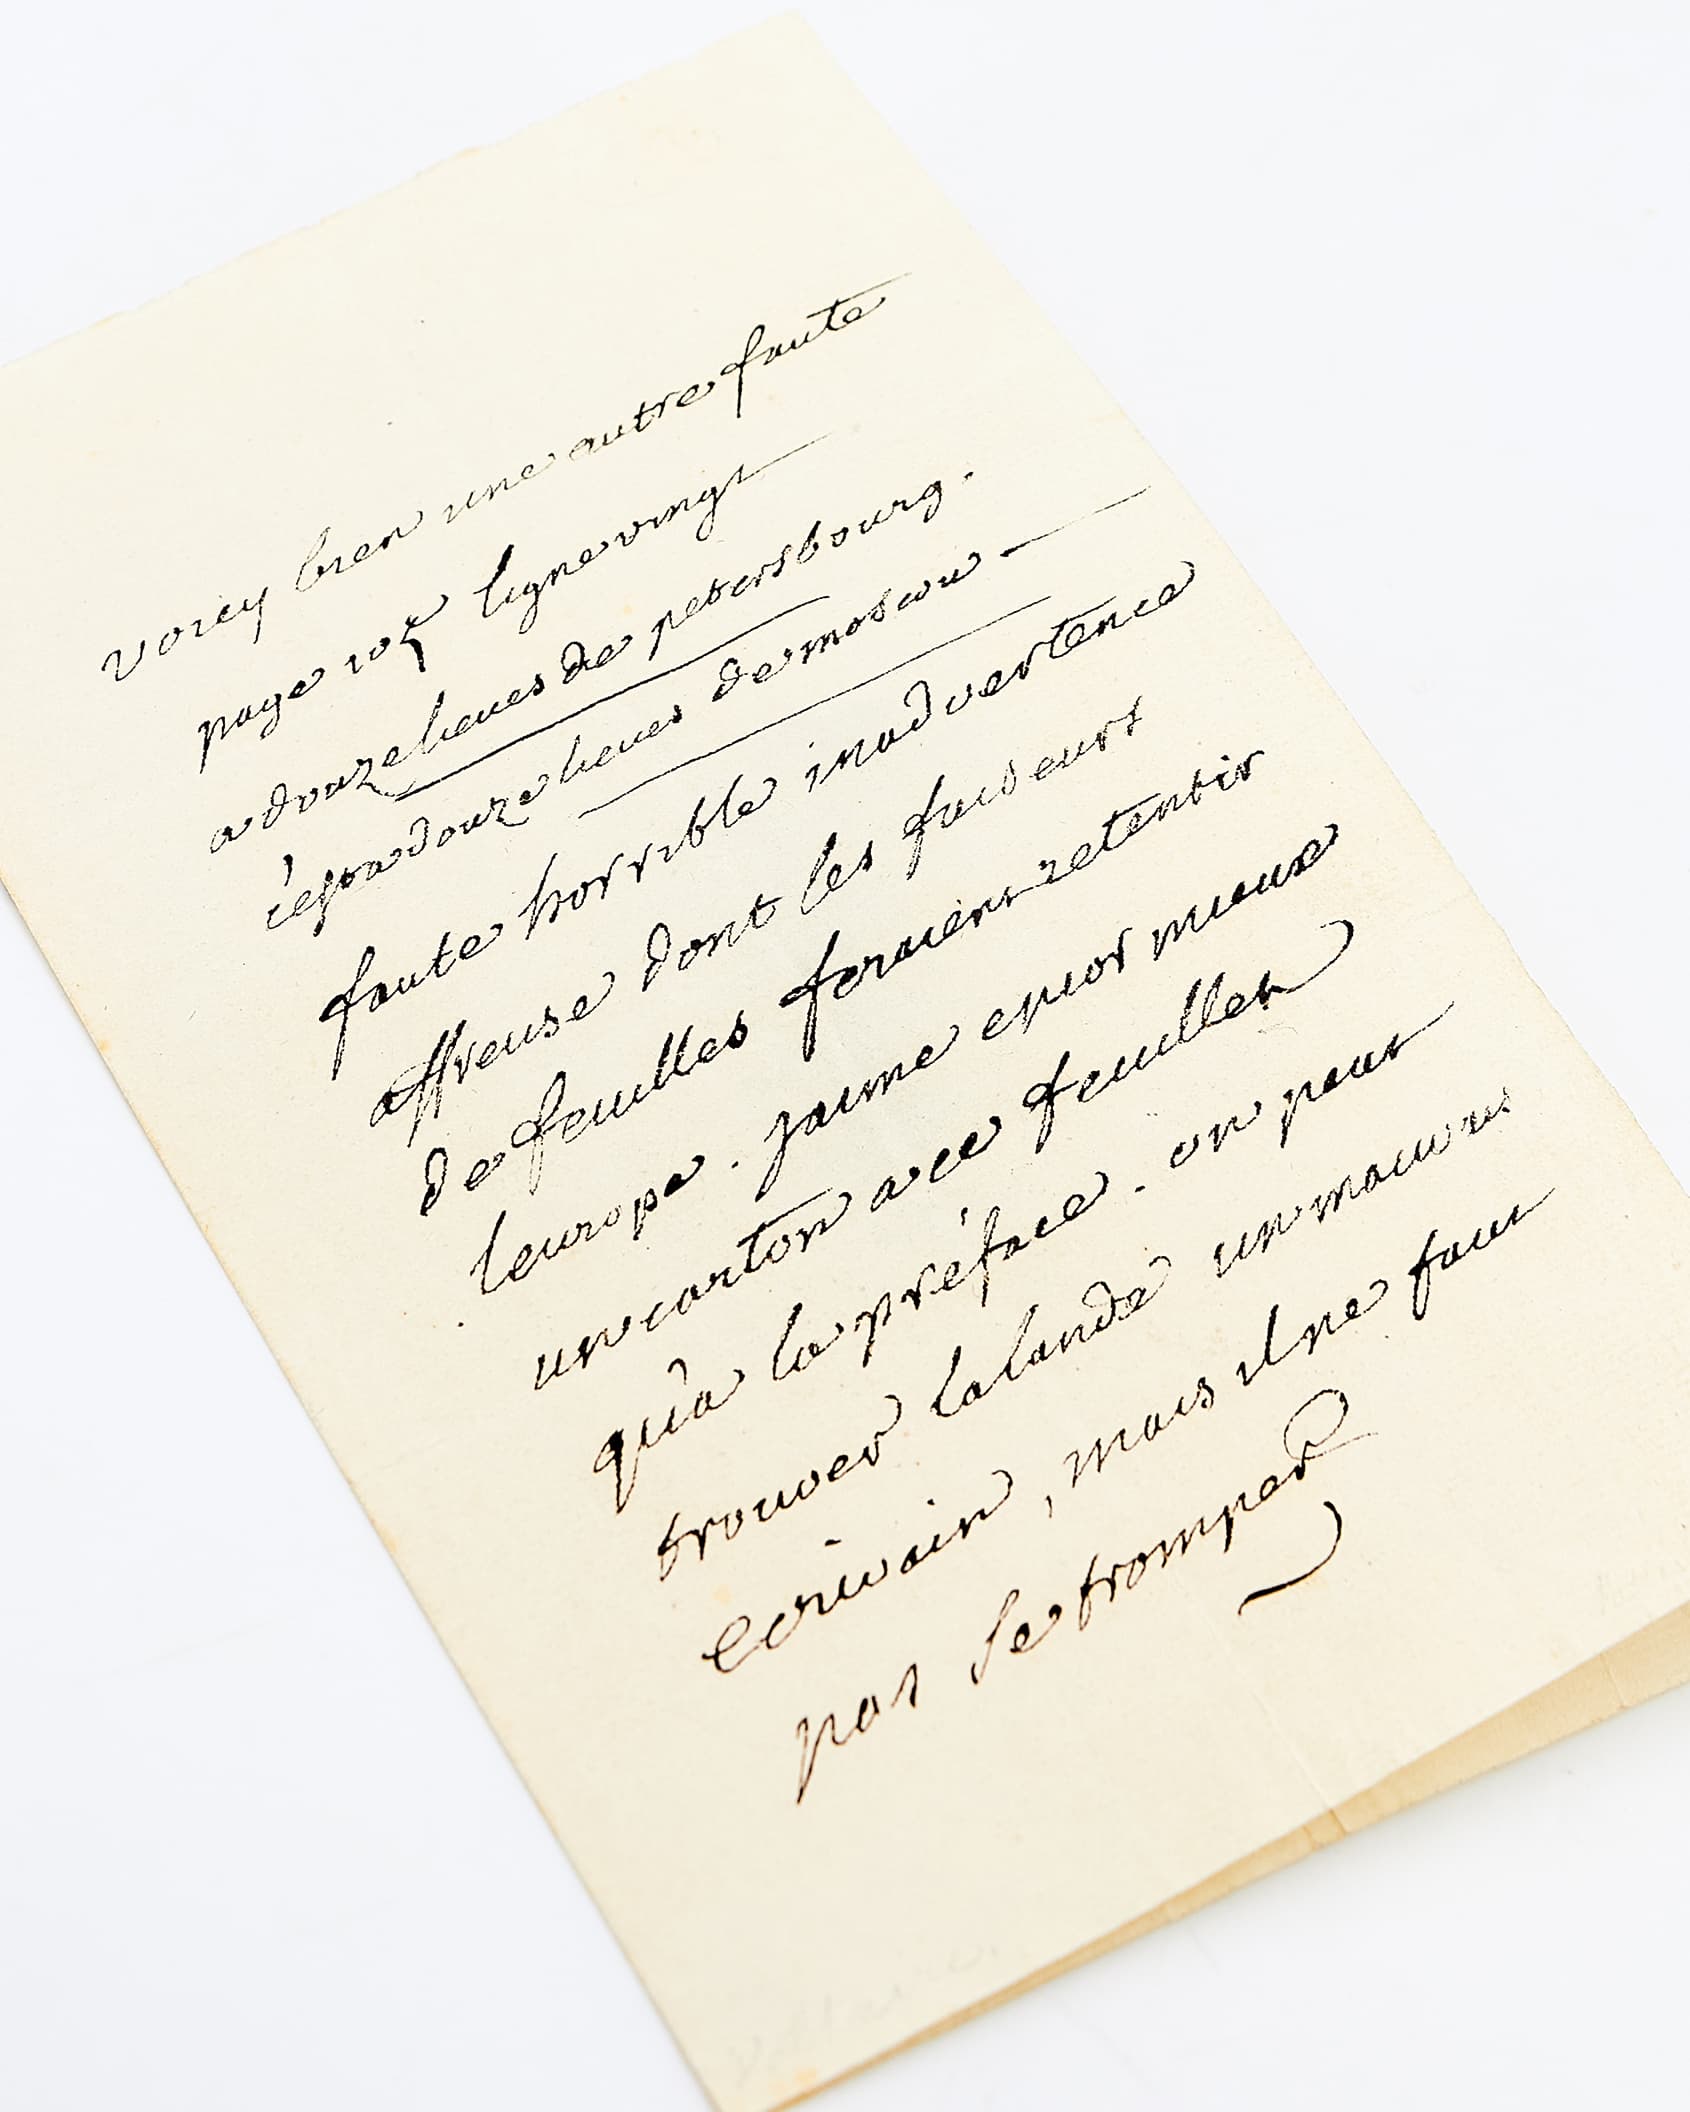 voicy bien une autre faute
page 105 ligne vingt
a douze lieues de petersbourg.
c'est a douze lieues de moscou —
faute horrible inadvertence
affreuse dont les faiseurs
de feuilles feroient retentir
leurope. jaime encor mieux
un carton a ce feuillet
qu'à la préface. on peut
trouver lalande un mauvais
ecrivain, mais il ne faut
pas se tromper
Voltaire.